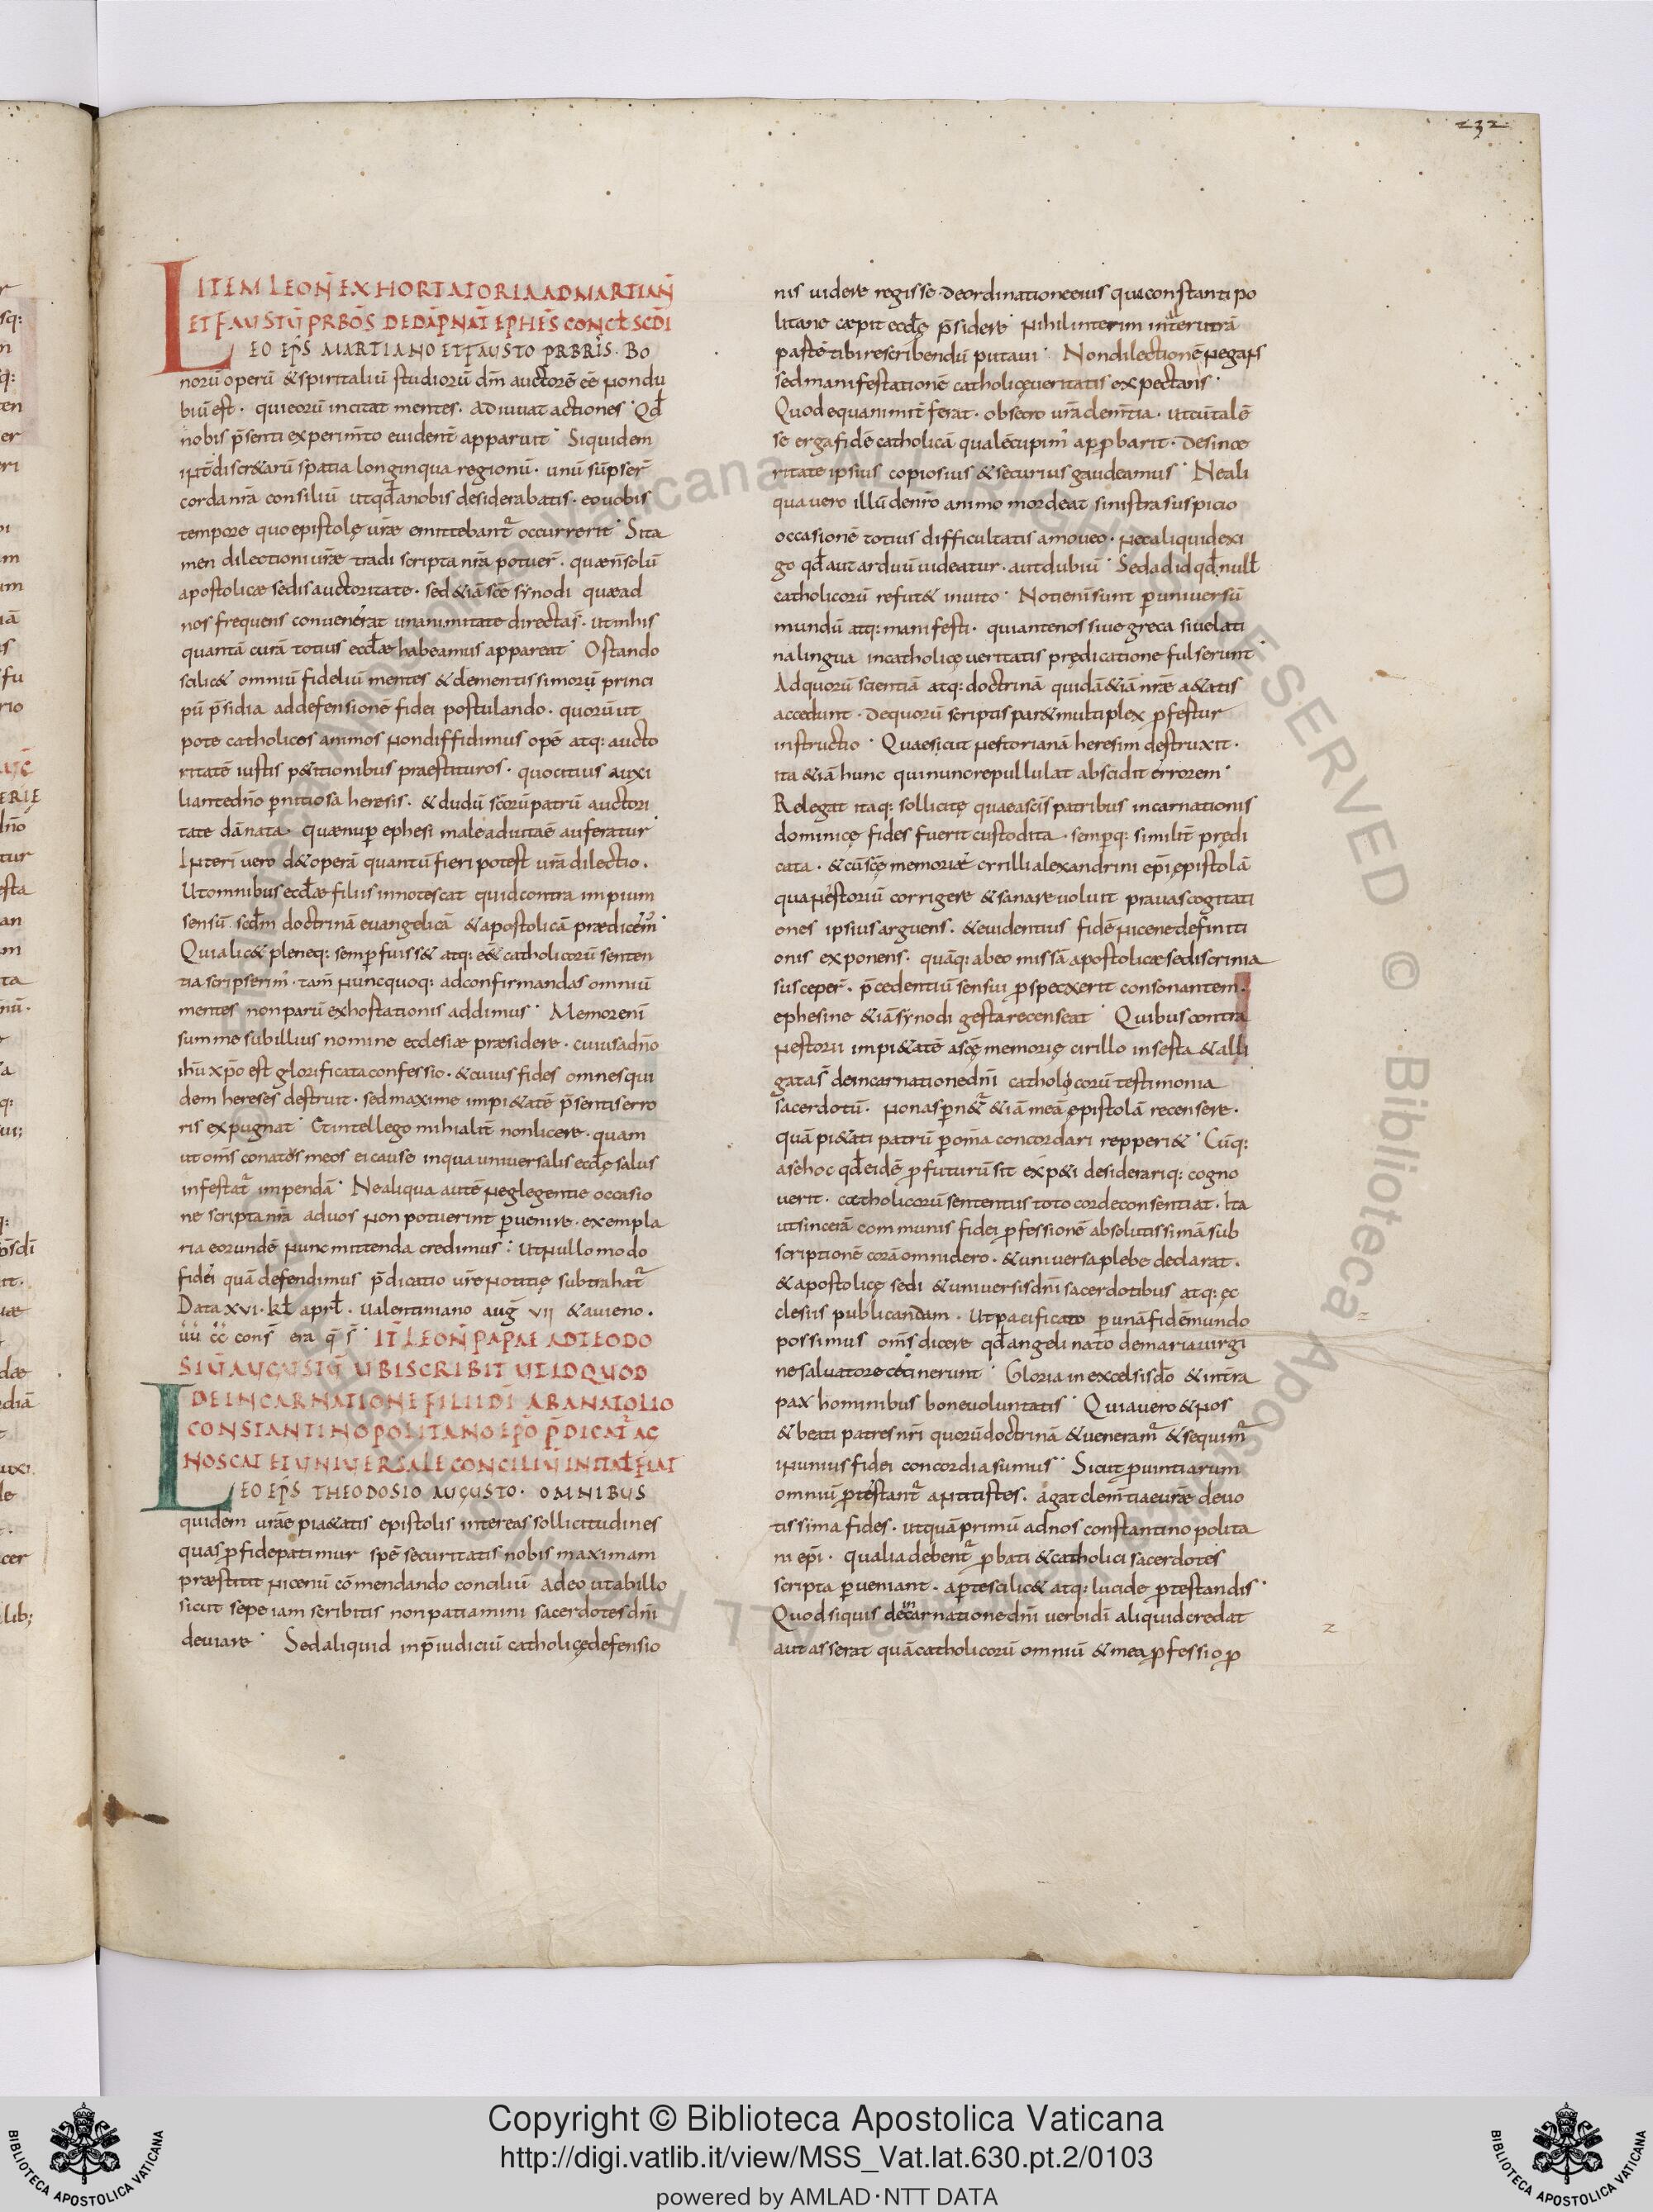 232
ITEM LEON̄ EXHORTATORIA AD MARTIAN̄
ET FAUSTŪ PRBŌS DE DAPNAT EPHES̄ CONCƚ SCD̄I
LEO EP̄S MARTIANO ET FAUSTO PRBRĪS. BO
norū operū & spiritaliū studiorū dm̄ auctorē eē non du
biū est. qui eorū incitat mentes. adiuuat actiones. Qđ
nobis p̄senti experim̄to euident̄ apparuit. Siquidem
int̄ discr&arū spatia longinqua regionū. unū sūpser̄
corda nr̄a consiliū ut qđ a nobis desiderabatis. eo uobis
tempore quo epistolę ur̄ae emittebant̄ occurrerit. Sita
men dilectioni ur̄ae tradi scripta nr̄a potuer̄. quae n̄ solū
apostolicae sedis auctoritate. sed &iā sc̄e synodi quae ad
nos frequens conuenerat unanimitate directa s̄. ut in his
quantā curā totius eccƚae habeamus appareat. Ostando
scilic& omniū fideliū mentes & clementissimorū princi
pū p̄sidia ad defensionē fidei postulando. quorū ut
pote catholicos animos non diffidimus opē atq: aucto
ritatē iustis p&itionibus praestituros. quo citius auxi
liante dn̄o pernitiosa heresis. & dudū sc̄orū patrū auctori
tate dānata. quae nup ephesi male adiuta ē auferatur
Interī uero d& operā quantū fieri potest ur̄a dilectio.
Ut omnibus eccƚae filiis innotescat quid contra impium
sensū scđm doctrinā euangelicā & apostolicā praedicem̄
Quia lic& pleneq: semp fuiss& atq: e&̄ catholicorū senten
tia scripserim̄. tam̄ nunc quoq: ad confirmandas omniū
mentes non parū exhostationis addimus. Memor enī
sum me sub illius nomine ecclesiae praesidere. cuius a dn̄o
ih̄u xp̄o est glorificata confessio. & cuius fides omnes qui
dem hereses destruit. sed maxime impi&atē p̄sentis erro
ris expugnat. Et intellego mihi alit̄ non licere. quam
ut om̄s conatos meos ei cause in qua uniuersalis eccƚę salus
infestat̄ impendā. Ne aliqua autē neglegentie occasio
ne scripta nr̄a ad uos non potuerint puenire. exempla
ria eorundē nunc mittenda credimus: Ut nullo modo
fidei quā defendimus p̄dicatio ur̄e notitię subtrahat̄
Data XVI. kƚ aprƚ. ualentiniano aug̅ VII & auieno.
ūū c̄c̄ cons̄ era q̄ s̄. IT̄ LEON̄ PAPAE AD TEODO
SIŪ AUGUSTŪ UBI SCRIBIT UT ID QUOD
DE INCARNATIONE FILII DĪ AB ANATOLIO
CONSTANTINOPOLITANO EP̄O P̄DICAT̄ AG
NOSCAT ET UNIUERSALE CONCILIŪ IN ITAƚ FIAT
LEO EP̄S THEODOSIO AUGUSTO. OMNIBUS
quidem ur̄ae pia&atis epistolis inter eas sollicitudines
quas p fide patimur spē securitatis nobis maximam
praestitit nicenū cōmendando conciliū adeo ut ab illo
sicut sepe iam scribitis non patiamini sacerdotes dn̄i
deuiare. Sed aliquid in p̄iudiciū catholicę defensio
nis uidere regisse. de ordinatione eius qui constantipo
litane caepit eccƚę p̄sidere. nihil interim in ut̄raʒ
partē tibi rescribendū putaui. Non dilectionē negans
sed manifestationē catholicę ueritatis expectans.
Quod equanimit̄ ferat. obsecro ur̄a clem̄tia. ut cū talē
se erga fidē catholicā qualē cupim̄ appbarit. de since
ritate ipsius copiosius & securius gaudeamus. Ne ali
qua uero illū de nr̄o animo mordeat sinistra suspicio
occasionē totius difficultatis amoueo. nec aliquid exi
go qđ aut arduū uideatur. aut dubiū. Sed ad id qđ nulƚ
catholicorū refut& inuito. Noti enī sunt p uniuersū
mundū atq: manifesti. qui ante nos siue greca siue lati
na lingua in catholicę ueritatis prędicatione fulserunt.
Ad quorū scientiā atq: doctrinā quidā &iā nr̄ae a&atis
accedunt. De quorū scriptis par & multiplex pfestur
instructio. Quae sicut nestorianā heresim destruxit.
ita &iā hunc qui nunc repullulat abscidit errorem.
Relegat itaq: sollicitę quae a sc̄is patribus incarnationis
dominicę fides fuerit custodita. sempq: similit̄ prędi
cata. & cū sc̄ę memoriae cyrilli alexandrini ep̄i epistolā
qua nestoriū corrigere & sanare uoluit prauas cogitati
ones ipsius arguens. & euidentius fidē nicene definiti
onis exponens. quāq: ab eo missā apostolicae sedis crinia
susceper̄. p̄cedentiū sensui pspecxerit consonantem.
ephesine &iā synodi gesta recenseat. Quibus contra
nestorii impi&atē a sc̄ę memorię cirillo insesta & alli
gata s̄ de incarnatione dn̄i catholicorū testimonia
sacerdotū. non aspn&̄ &iā meā epistolā recensere.
quā pi&ati patrū p om̄ia concordari repperi&. Cūq:
a se hoc qđ eidē pfuturū sit exp&i desiderariq: cogno
uerit. catholicorū sententiis toto corde consentiat. Ita
ut sincerā communis fidei pfessionē absolutissimā sub
scriptionē corā omni clero. & uniuersa plebe declarat.
& apostolicę sedi & uniuersis dn̄i sacerdotibus atq: ęc
clesiis publicandam. Ut pacificato p unā fidē mundo
possimus om̄s dicere qđ angeli nato de maria uirgi
ne saluatore cecinerunt. Gloria in excelsis dō & in tr̄a
pax hominibus bone uoluntatis. Quia uero & nos
& beati patres nr̄i quorū doctrinā & ueneram̄ & sequim̄
in unius fidei concordia sumus. Sicut puintiarum
omniū ptestant̄ antitistes. agat clem̄tiae ur̄ae deuo
tissima fides. ut quā primū ad nos constantinopolita
ni ep̄i. qualia debent̄ pbati & catholici sacerdotes
scripta pueniant. apte scilic& atq: lucide ptestandis.
Quod si quis de incarnatione dn̄i uerbi dī aliquid credat
aut asserat quā catholicorū omniū & mea pfessio p
Copyright © Biblioteca Apostolica Vaticana
http://digi.vatlib.it/view/MSS_Vat.lat.630.pt.2/0103
powered by AMLAD·NTT DATA
BIBLIOTECA APOSTOLICA VATICANA
BIBLIOTECA APOSTOLICA VATICANA